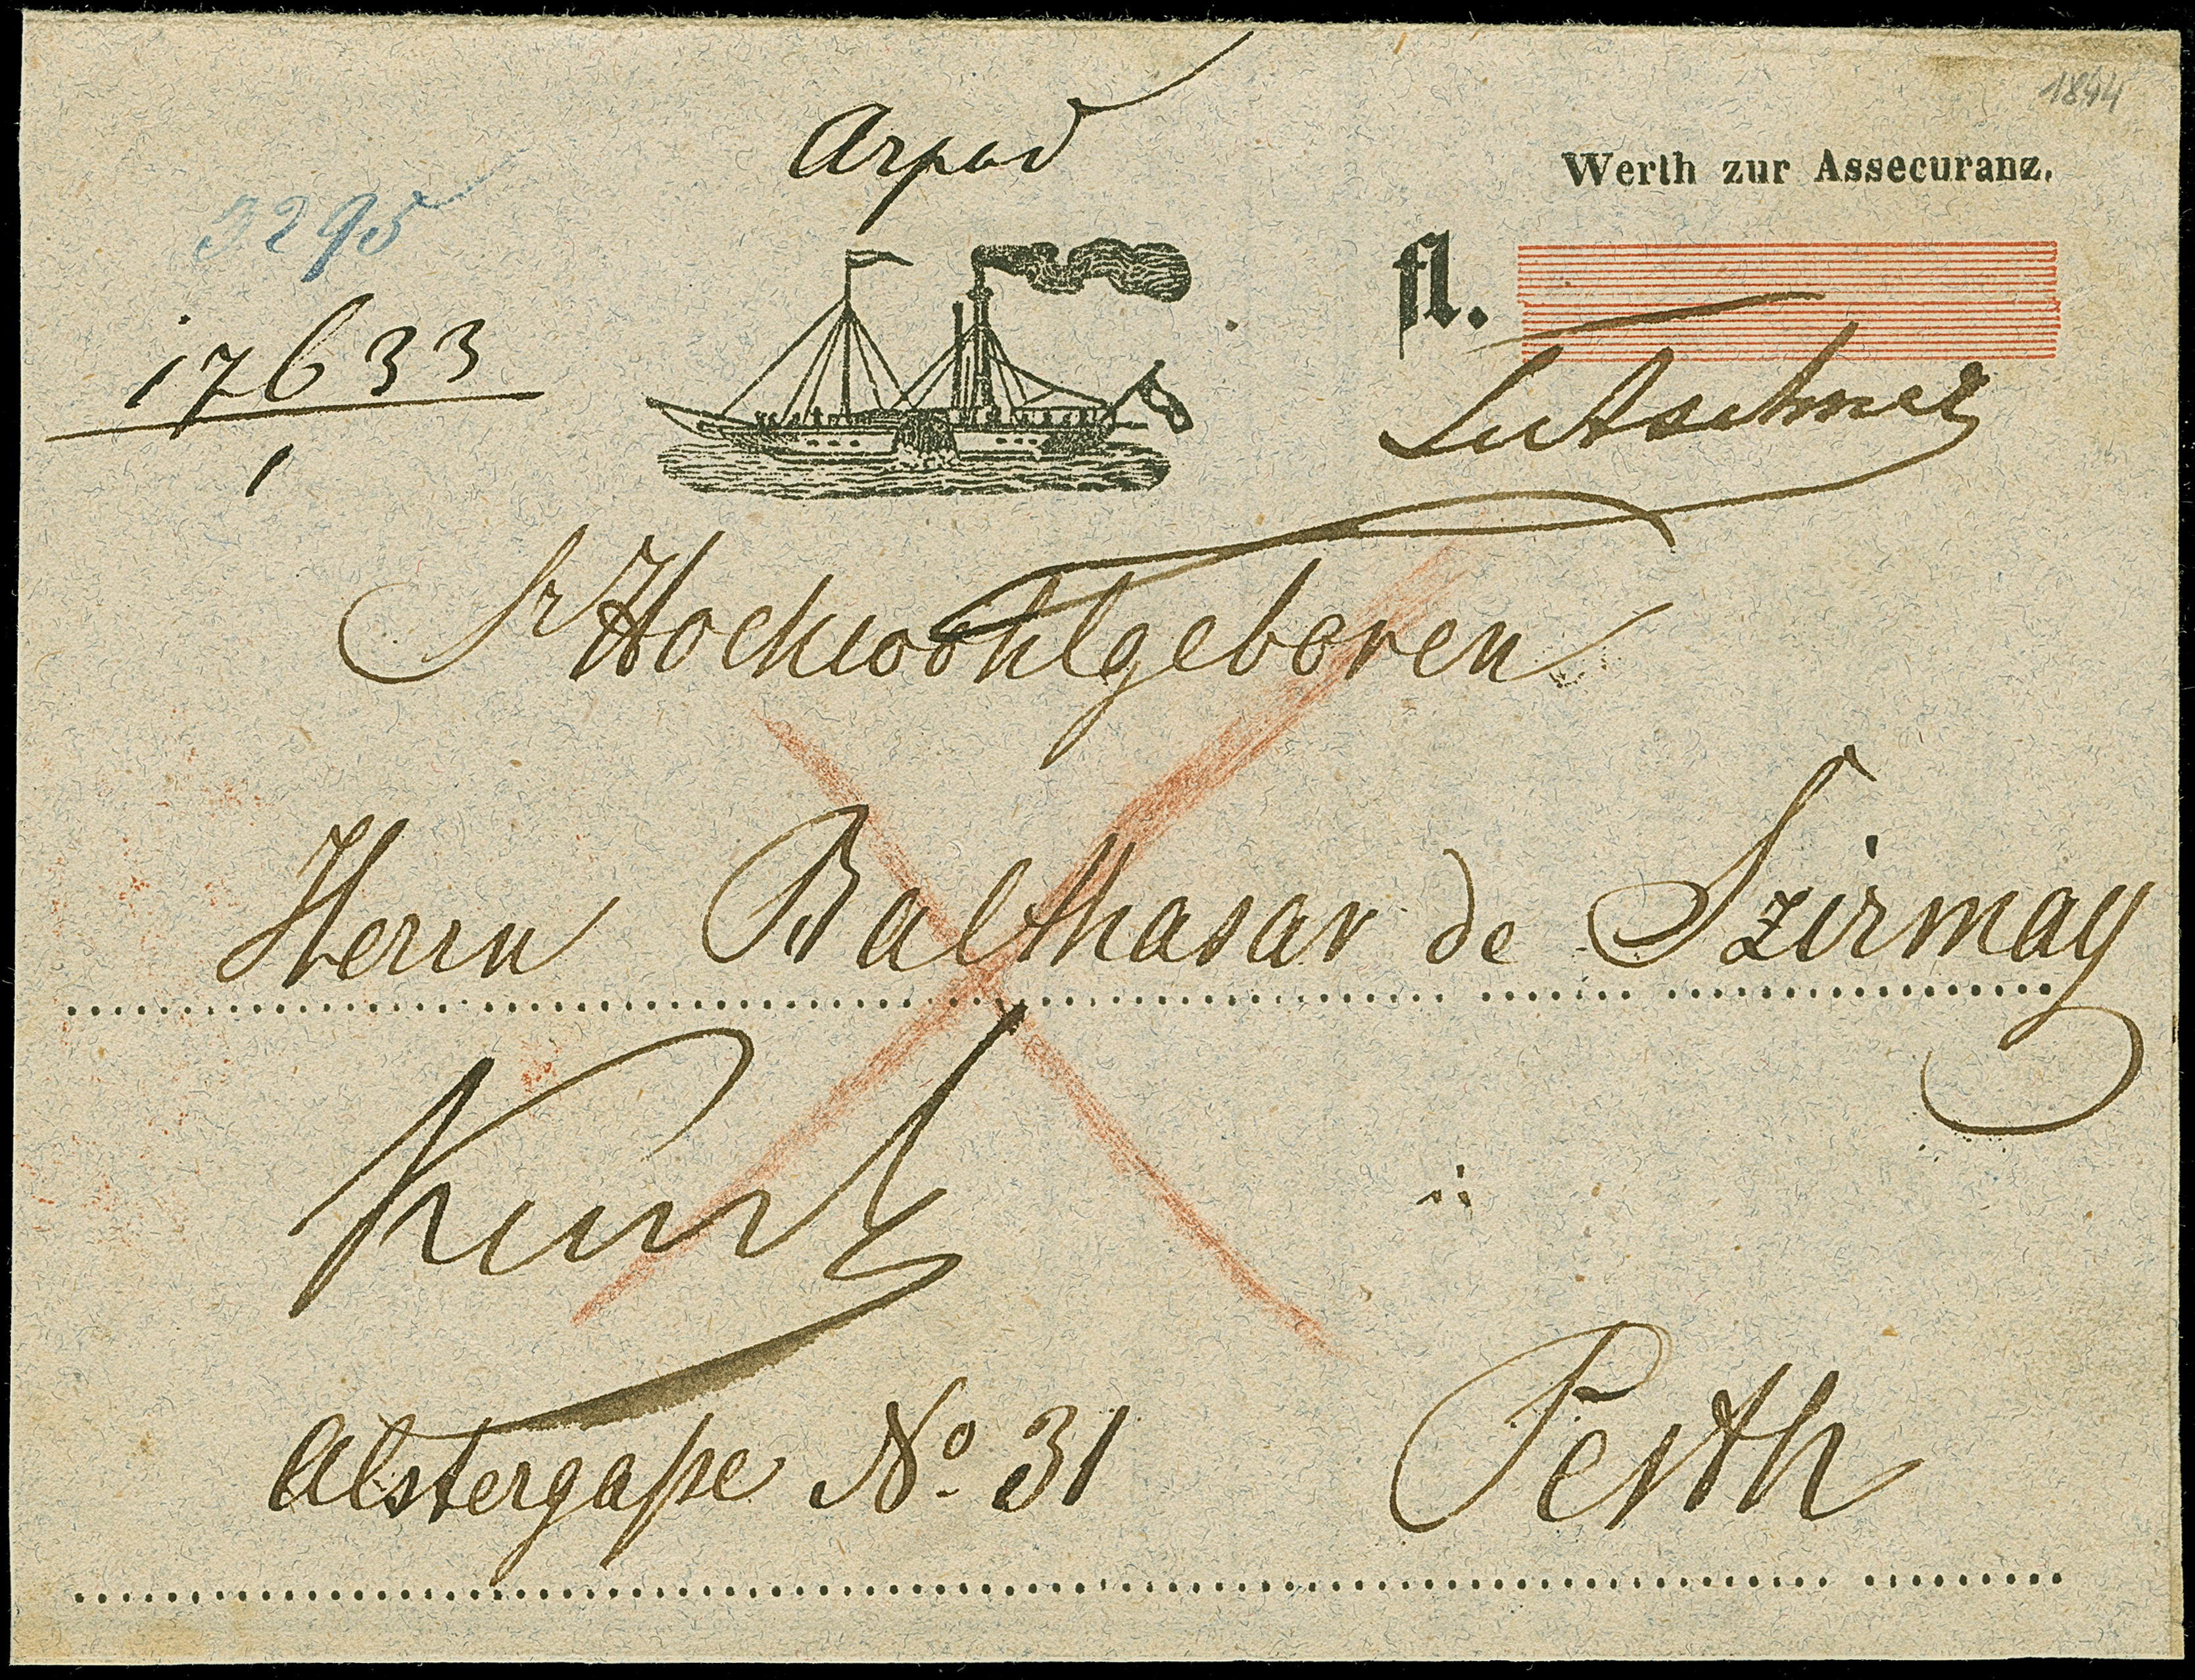 1844
Arpad
Werth zur Assecuranz.
3295
fl.
17633
1
Sr Hochwohlgeboren
Herrn Balthasar de Szirmay
Alstergaße No. 31 Pesth